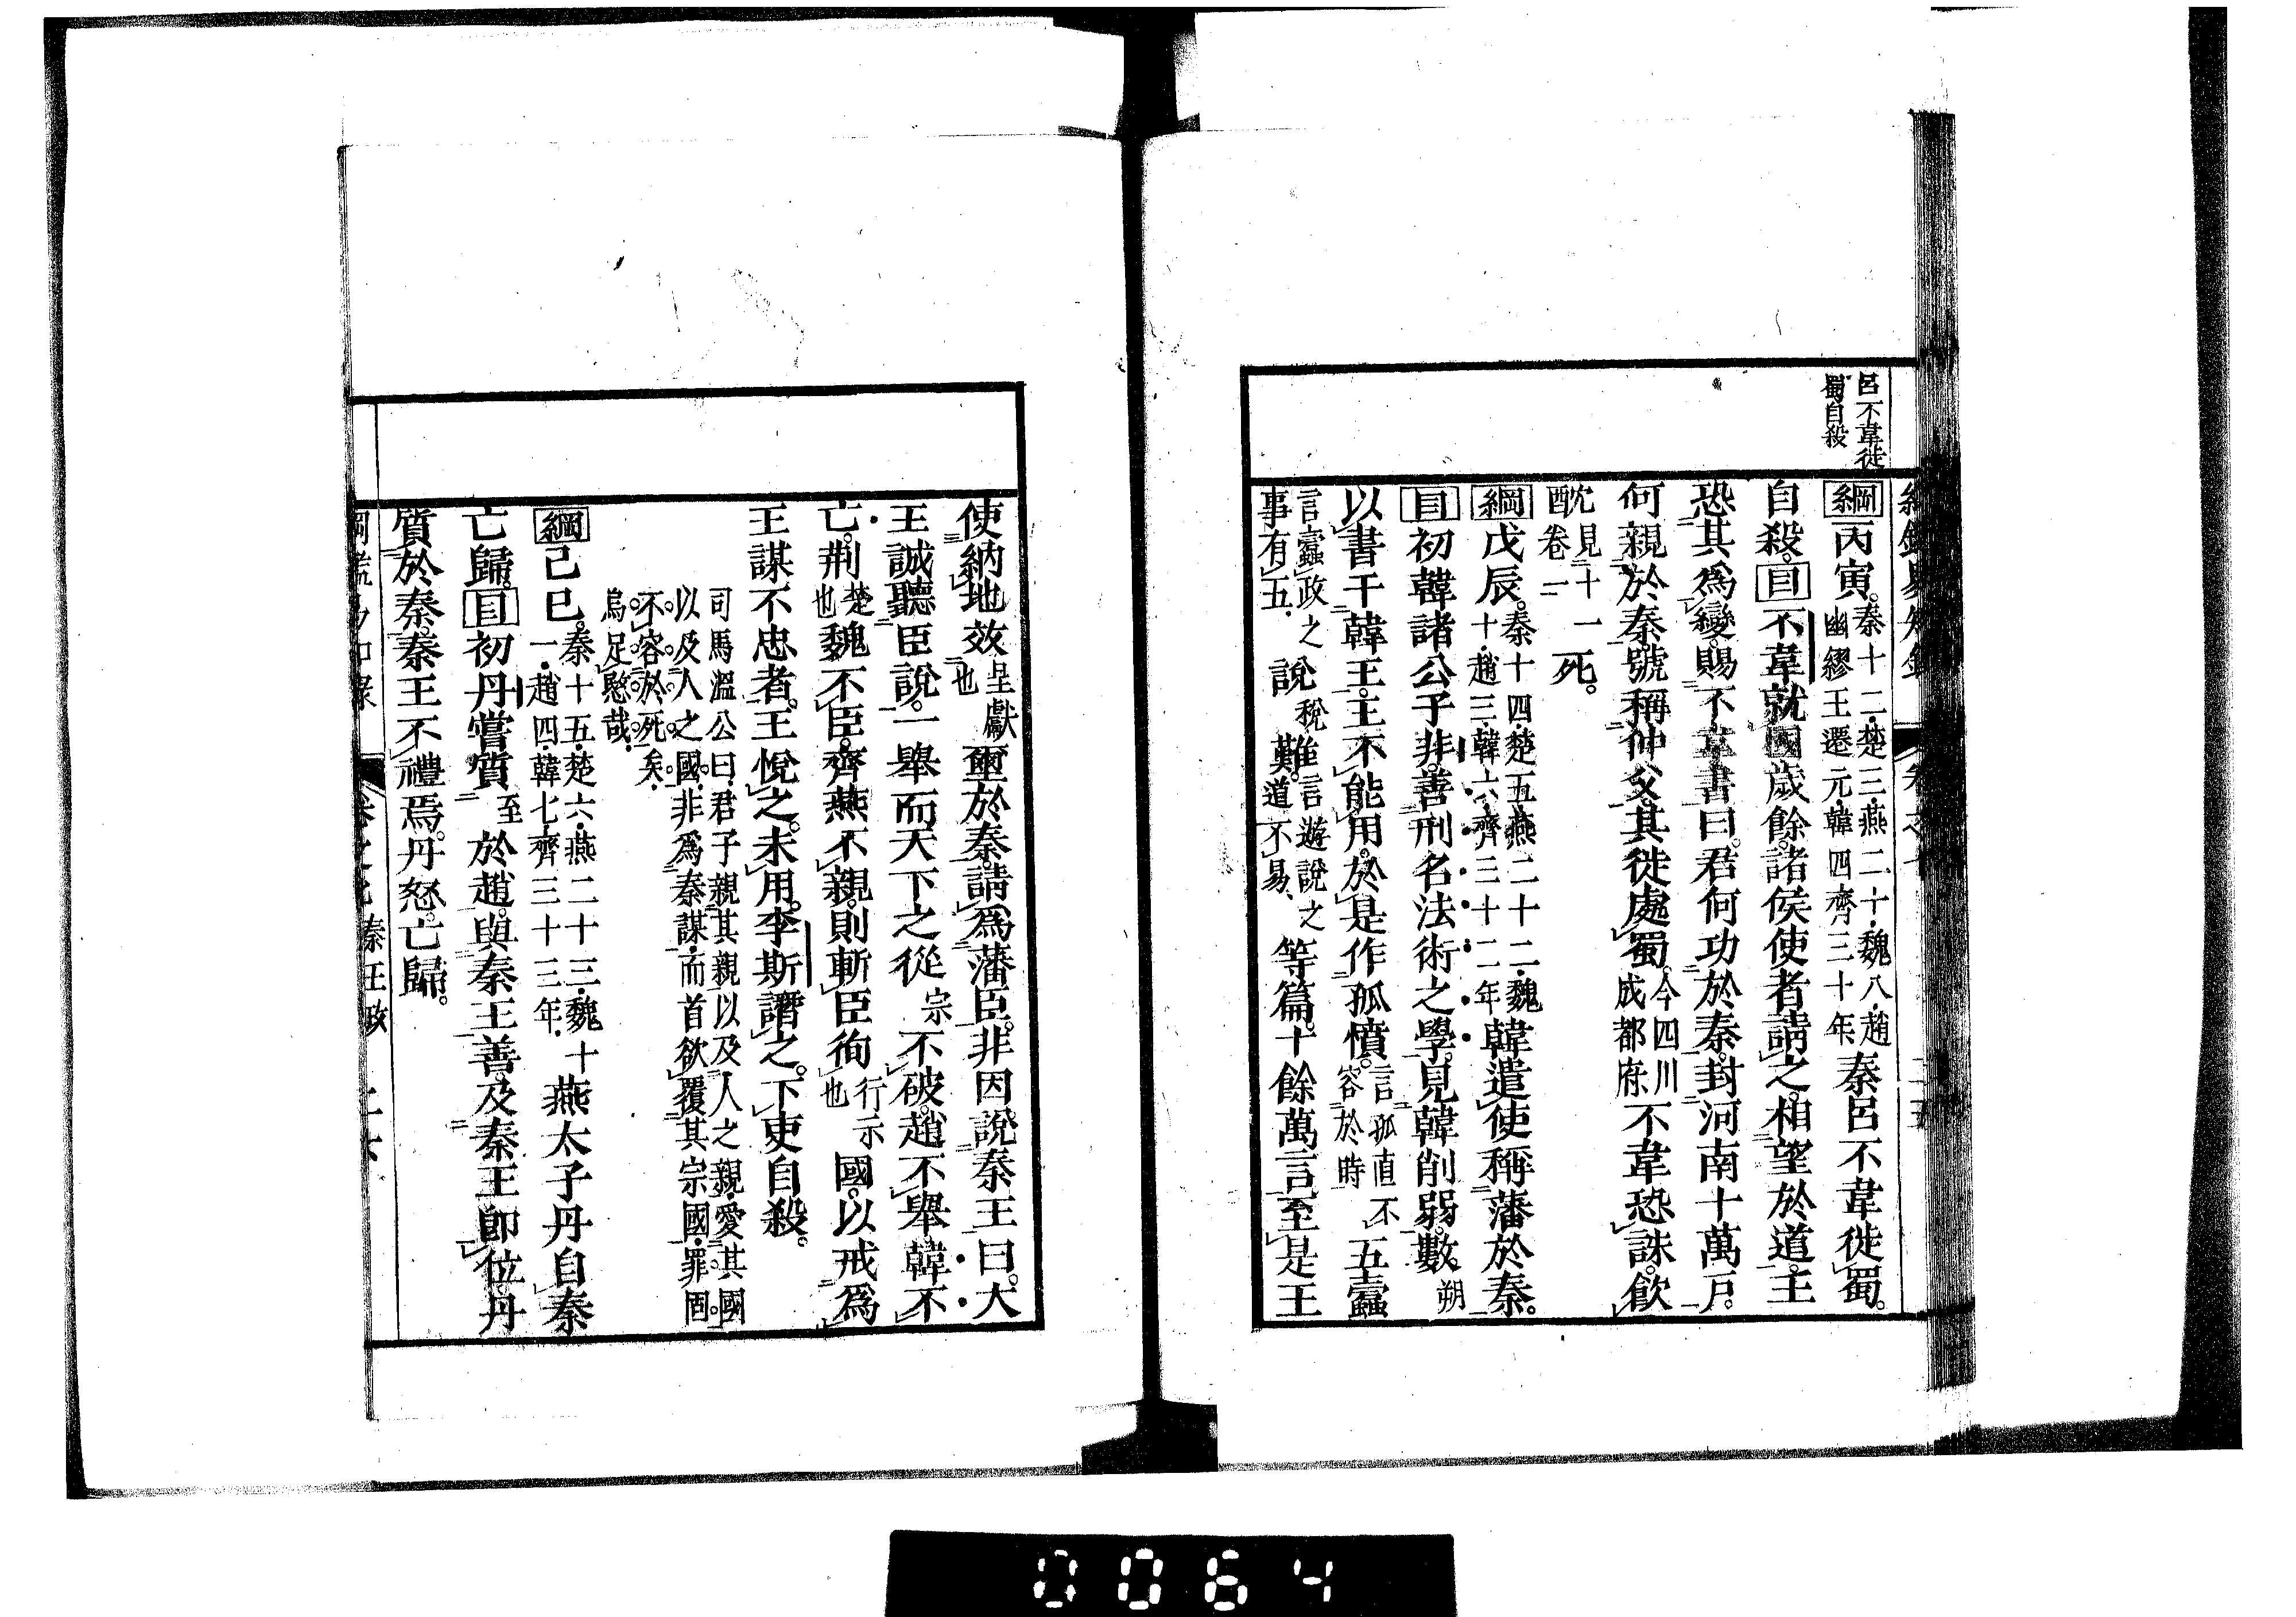 呂不韋徙
蜀自殺
綱丙寅。秦十二・楚三・燕二十・魏八・趙
幽繆王遷元・韓四齊三十年
秦呂不韋徙蜀。
自殺。目不韋就國歲餘。諸侯使者請之。相望於道。王
恐其爲變。賜不韋書曰。君何功於秦。封河南十萬戶。
何親於秦。號稱仲父。其徙處蜀。今四川
成都府。不韋恐誅。飮
酖見十一
卷一死。
綱戊辰。秦十四・楚五燕二十二・魏
十・趙三・韓六・齊三十二年
韓遣使稱藩於秦。
目初韓諸公子非。善刑名法術之學。見韓削弱。數朔
以書干韓王。王不能用。於是作孤憤。言孤直不
容於時五蠹
言蠹政之
事有五・說稅難。難言遊說之
道不易、等篇。十餘萬言。至是王
使納地效呈獻
也璽於秦。請爲藩臣。非因說秦王曰。大
王誠聽臣說。一舉而天下之從宗不破。趙不舉・韓不
亡。荆楚
也魏不臣。齊燕不親。則斬臣徇行示
也國。以戒爲
王謀不忠者。王悅之。未用。李斯譖之。下吏自殺。
司馬溫公曰・君子親其親以及人之親・愛其國
以及人之國・非爲秦謀・而首欲覆其宗國・罪固
不容於死矣・
烏足愍哉・
綱己巳。秦十五・楚六・燕二十三・魏十
一・趙四・韓七齊三十三年・
燕太子丹自秦
亡歸。目初丹嘗質至於趙。與秦王善。及秦王卽位。丹
質於秦。秦王不禮焉。丹怒。亡歸。
秦王政